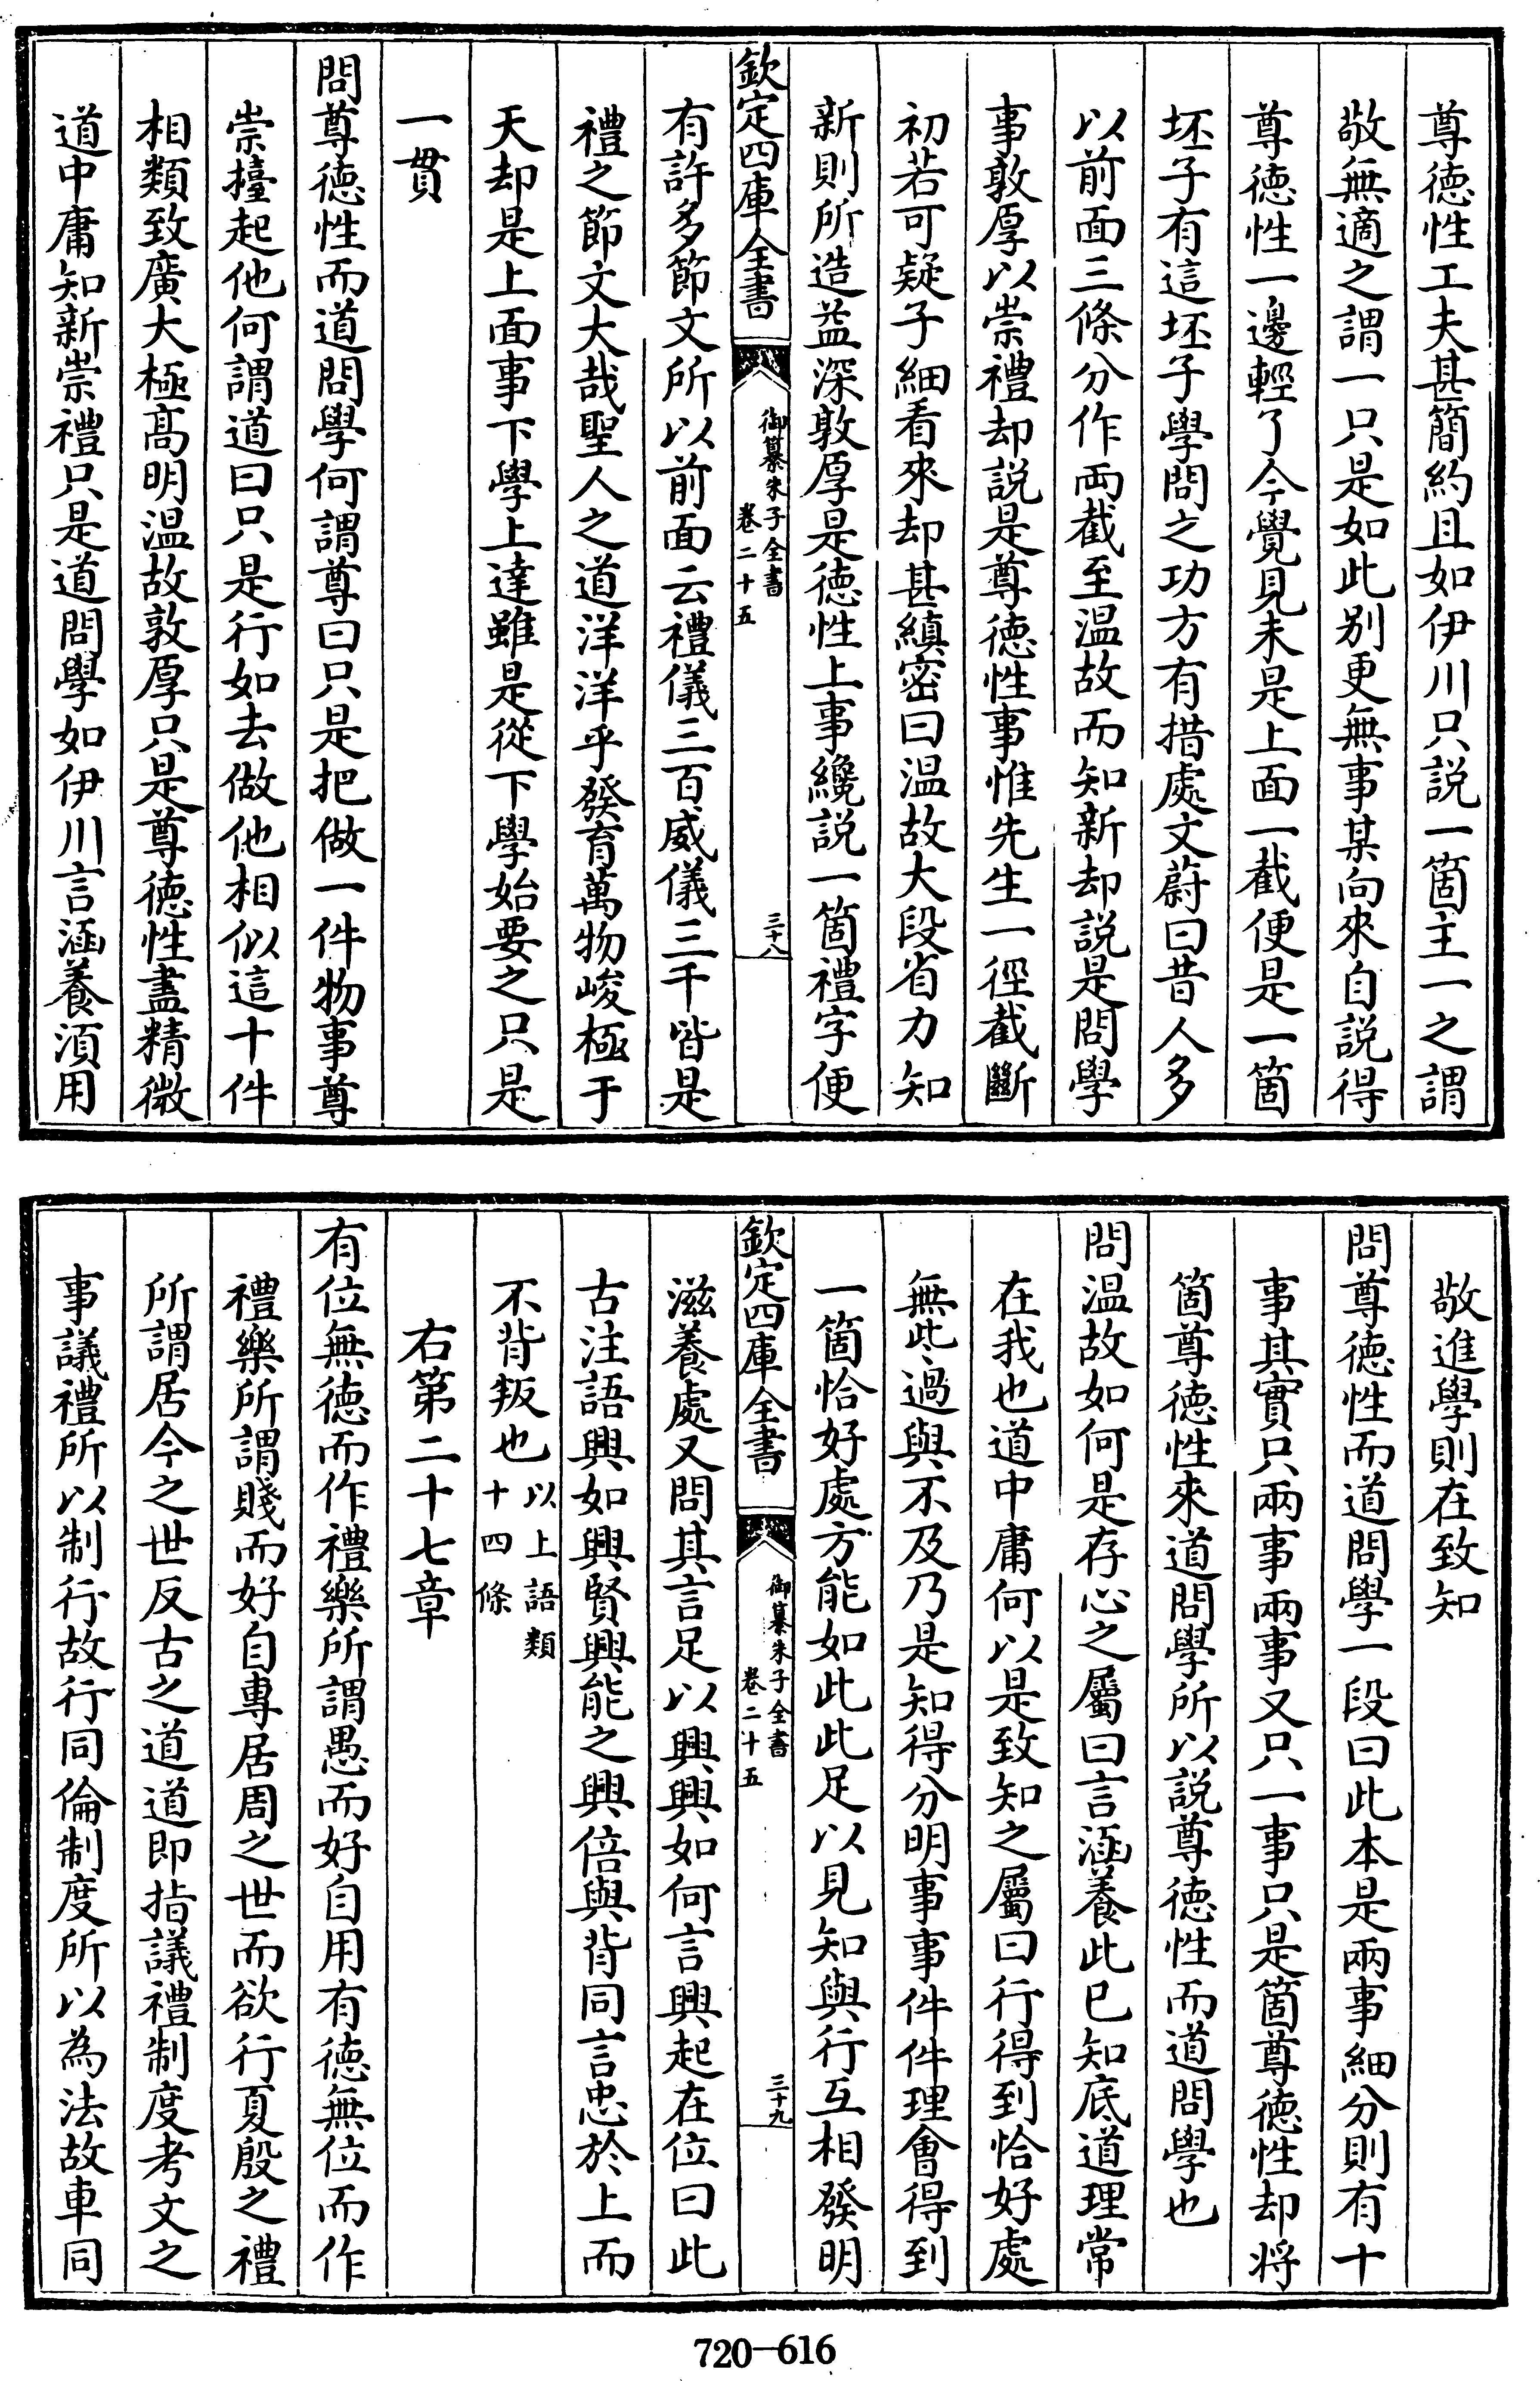 尊徳性工夫甚簡約且如伊川只説一箇主一之謂
敬無適之謂一只是如此别更無事某向來自説得
尊徳性一邊輕了今覺見未是上面一截便是一箇
坯子有這坯子學問之功方有措處文蔚曰昔人多
以前面三條分作兩截至温故而知新却説是問學
事敦厚以崇禮却説是尊徳性事惟先生一徑截斷
初若可疑子細看來却甚縝密曰温故大段省力知
新則所造益深敦厚是徳性上事纔説一箇禮字便
欽定四庫全書
御纂朱子全書
卷二十五
三十八
有許多節文所以前面云禮儀三百威儀三千皆是
禮之節文大哉聖人之道洋洋乎發育萬物峻極于
天却是上面事下學上達雖是從下學始要之只是
一貫
問尊徳性而道問學何謂尊曰只是把做一件物事尊
崇擡起他何謂道曰只是行如去做他相似這十件
相類致廣大極髙明温故敦厚只是尊徳性盡精微
道中庸知新崇禮只是道問學如伊川言涵養湏用
敬進學則在致知
問尊徳性而道問學一段曰此本是兩事細分則有十
事其實只兩事兩事又只一事只是箇尊徳性却將
箇尊徳性來道問學所以説尊徳性而道問學也
問温故如何是存心之屬曰言涵養此已知底道理常
在我也道中庸何以是致知之屬曰行得到恰好處
無此過與不及乃是知得分明事事件件理會得到
一箇恰好處方能如此此足以見知與行互相發明
欽定四庫全書
御纂朱子全書
卷二十五
三十九
滋養處又問其言足以興興如何言興起在位曰此
古注語興如興賢興能之興倍與背同言忠於上而
不背叛也以上語類
十四條
右第二十七章
有位無徳而作禮樂所謂愚而好自用有徳無位而作
禮樂所謂賤而好自專居周之世而欲行夏殷之禮
所謂居今之世反古之道道即指議禮制度考文之
事議禮所以制行故行同倫制度所以為法故車同
720-616